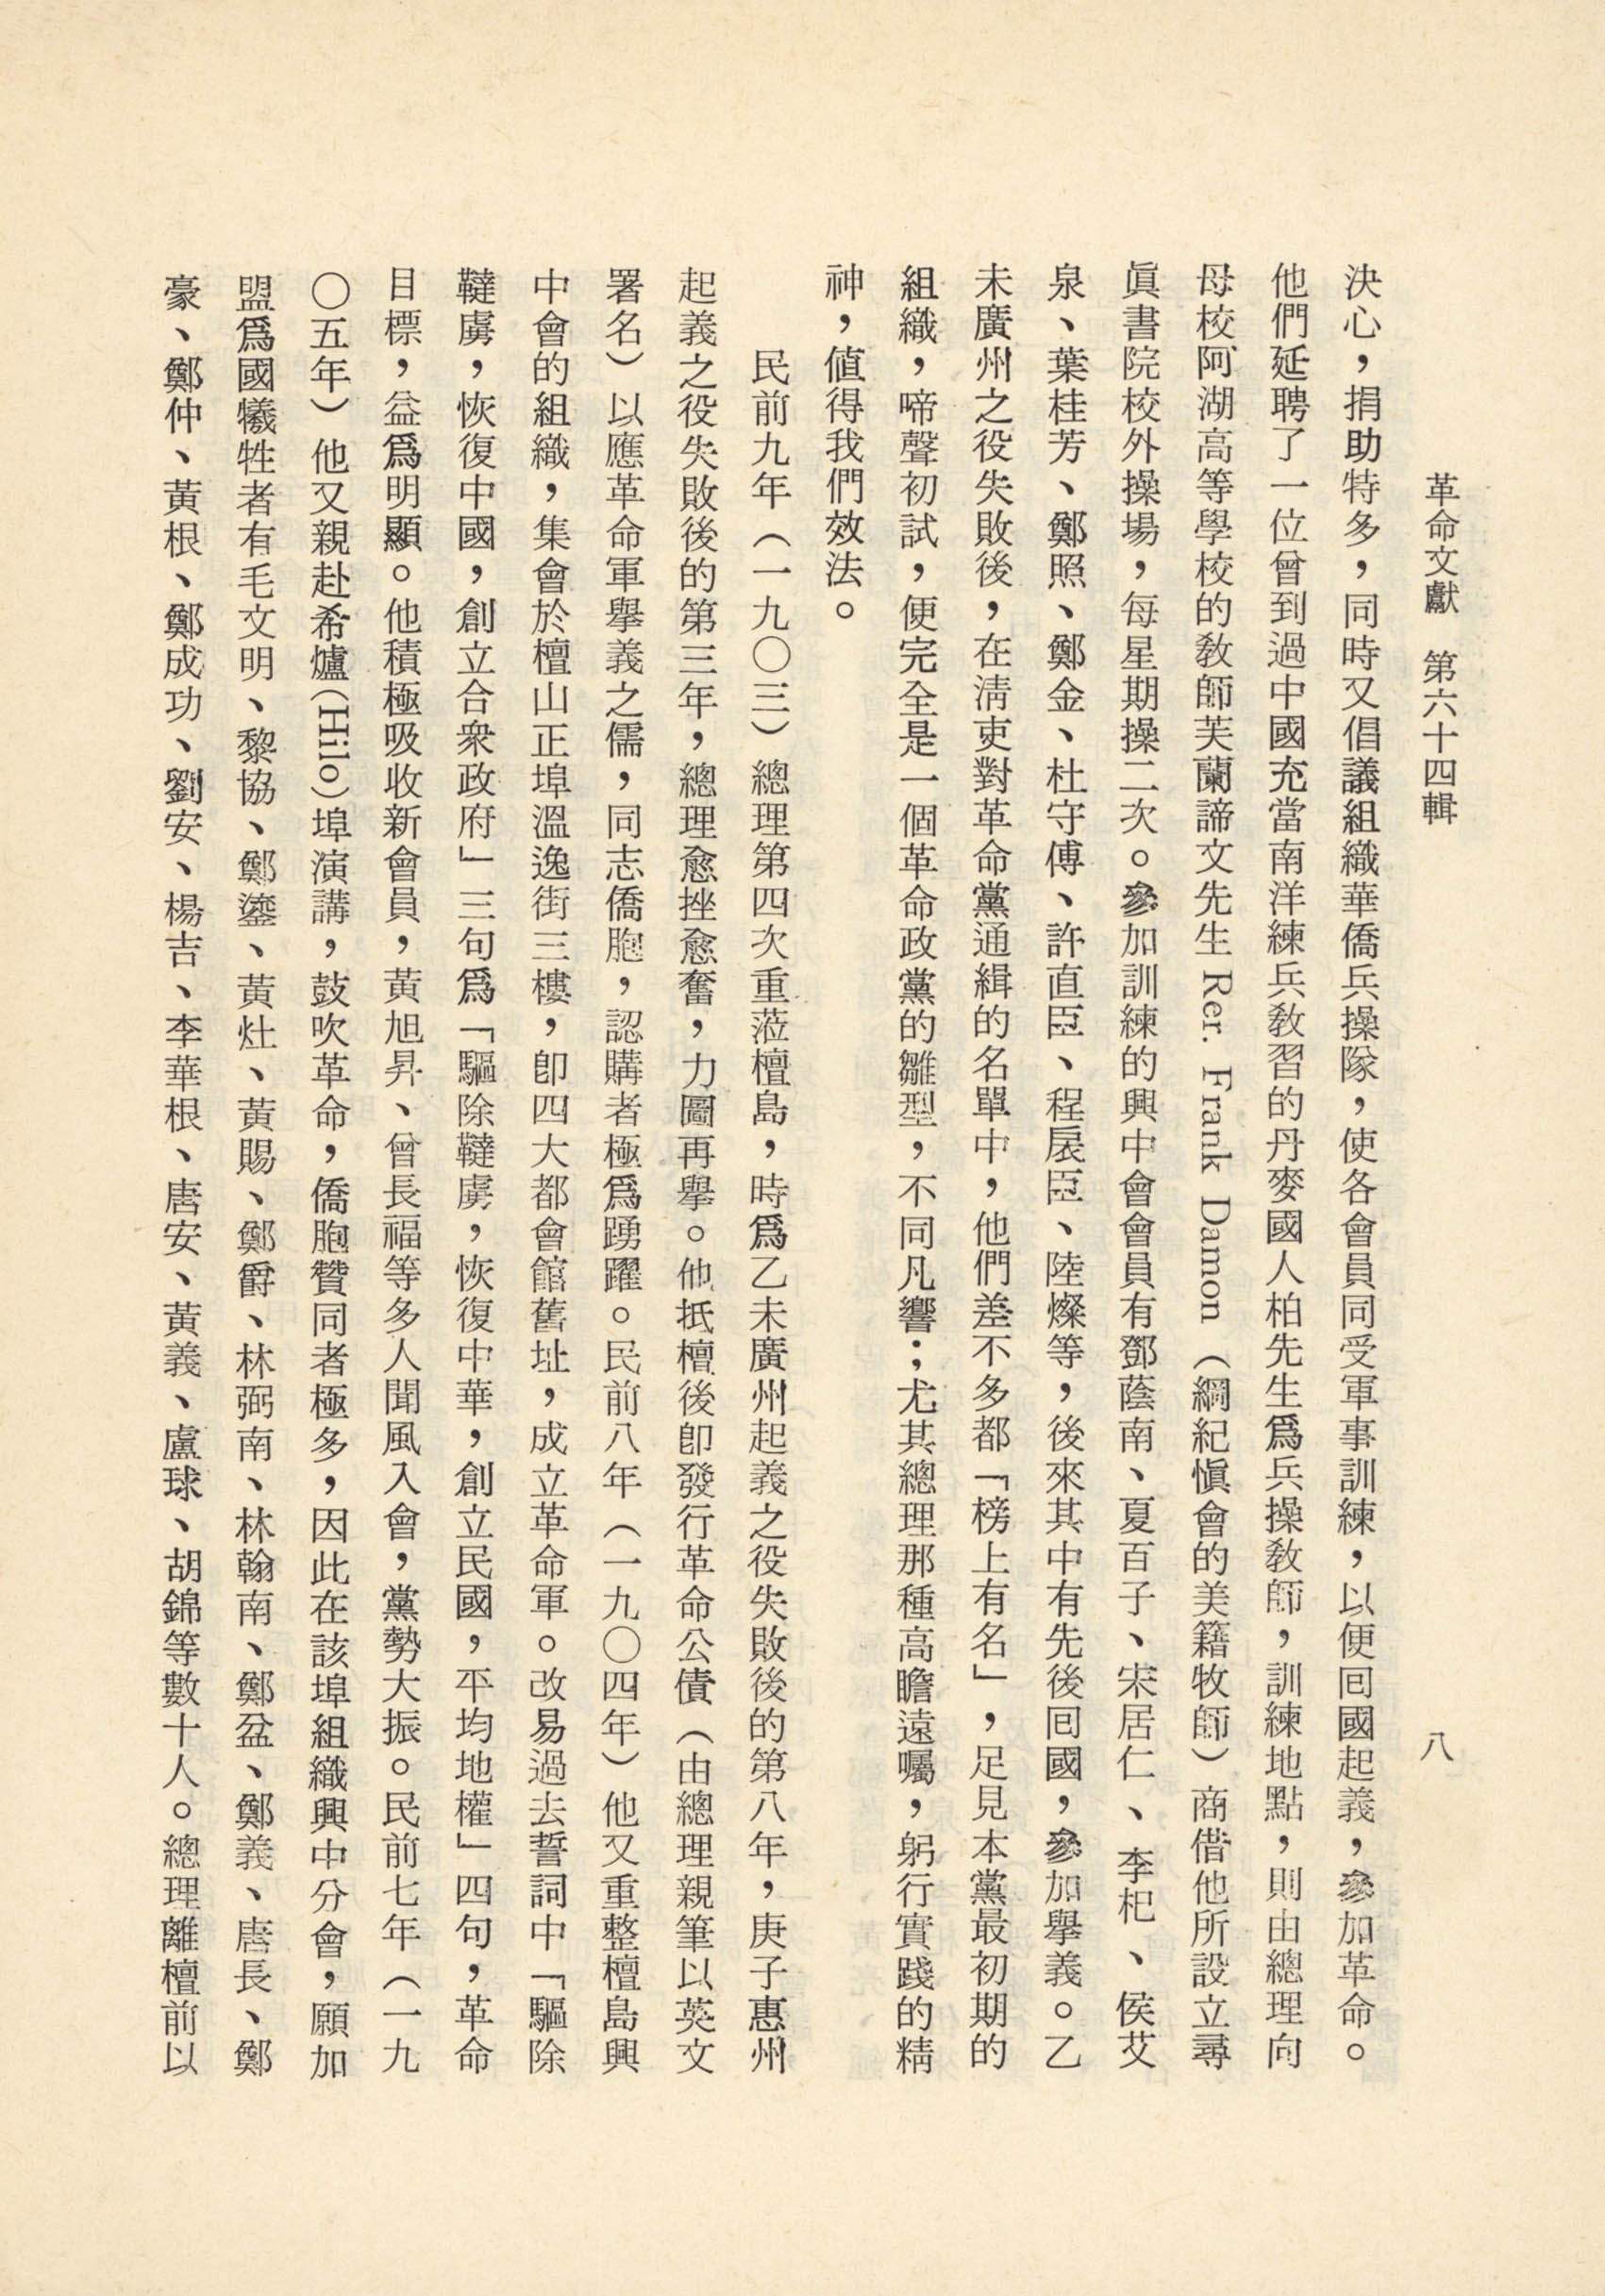 革命文獻　第六十四輯　八
決心，捐助特多，同時又倡議組織華僑兵操隊，使各會員同受軍事訓練，以便囘國起義，參加革命。
他們延聘了一位曾到過中國充當南洋練兵敎習的丹麥國人柏先生爲兵操敎師，訓練地點，則由總理向
母校阿湖高等學校的敎師芙蘭諦文先生 Rer. Frank Damon（綱紀愼會的美籍牧師）商借他所設立尋
眞書院校外操場，每星期操二次。參加訓練的興中會會員有鄧蔭南、夏百子、宋居仁、李杞、侯艾
泉、葉桂芳、鄭照、鄭金、杜守傅、許直臣、程扆臣、陸燦等，後來其中有先後囘國，參加擧義。乙
未廣州之役失敗後，在淸吏對革命黨通緝的名單中，他們差不多都「榜上有名」，足見本黨最初期的
組織，啼聲初試，便完全是一個革命政黨的雛型，不同凡響；尤其總理那種高瞻遠矚，躬行實踐的精
神，値得我們效法。
民前九年（一九〇三）總理第四次重蒞檀島，時爲乙未廣州起義之役失敗後的第八年，庚子惠州
起義之役失敗後的第三年，總理愈挫愈奮，力圖再擧。他抵檀後卽發行革命公債（由總理親筆以英文
署名）以應革命軍擧義之儒，同志僑胞，認購者極爲踴躍。民前八年（一九〇四年）他又重整檀島興
中會的組織，集會於檀山正埠溫逸街三樓，卽四大都會館舊址，成立革命軍。改易過去誓詞中「驅除
韃虜，恢復中國，創立合衆政府」三句爲「驅除韃虜，恢復中華，創立民國，平均地權」四句，革命
目標，益爲明顯。他積極吸收新會員，黃旭昇、曾長福等多人聞風入會，黨勢大振。民前七年（一九
〇五年）他又親赴希爐(Hilo)埠演講，鼓吹革命，僑胞贊同者極多，因此在該埠組織興中分會，願加
盟爲國犧牲者有毛文明、黎協、鄭鎏、黃灶、黃賜、鄭爵、林弼南、林翰南、鄭盆、鄭義、唐長、鄭
豪、鄭仲、黃根、鄭成功、劉安、楊吉、李華根、唐安、黃義、盧球、胡錦等數十人。總理離檀前以